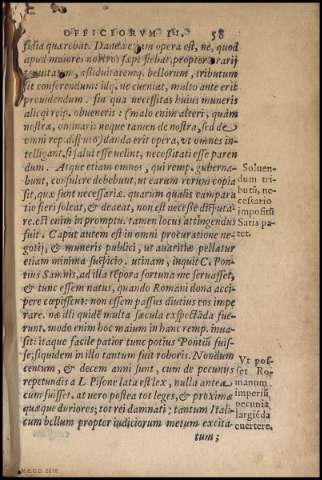 OFFICIORVM II. 58
sidia quærebat. Danda etiam opera est, ne, quod
apud maiores nostros sæpe fiebat, propter ærarij
tenuitatem, assiduitatemq. bellorum, tributum
sit conferendum: idq. ne eueniat, multo ante erit
prouidendum. sin qua necessitas huius muneris
alicui reip. obuenerit: (malo enim alteri, quàm
nostræ, ominari: neque tamen de nostra, sed de
omni rep. disputo) danda erit opera, vt omnes in-
telligant, si salui esse uelint, necessitati esse paren
dum. Atque etiam omnes, qui remp. guberna-
bunt, consulere debebunt, ut earum rerum copia
sit, quæ sunt necessariæ. quarum qualis comparatio
fieri soleat, & debeat, non est necesse disputa-
re. est enim in promptu. tamen locus attingendus
fuit. Caput autem est in omni procuratione ne-
gotij, & muneris publici, ut auaritiæ pellatur
etiam minima suspicio. utinam, inquit C. Pon-
tius Samnis, ad illa tépora fortuna me seruasset,
& tunc essem natus, quando Romani dona acci
pere cœpissent: non essem passus diutius eos impe
rare. ne illi quidē multa sæcula expectāda fue-
runt. modo enim hoc malum in hanc remp. inua-
sit: itaque facile patior tunc potius Pontiū fuis-
se; siquidem in illo tantum fuit roboris. Nondum
centum, & decem anni sunt, cum de pecunijs
repetundis a L. Pisone lata est lex, nulla antea
cum fuisset. at uero postea tot leges, & proximæ
quæque duriores; tot rei damnati; tantum Itali-
cum bellum propter iudiciorum metum excita-
tum;
Soluen-
dum tri-
butū, ne-
cessario
impositū
Satis pa-
tet.
Vt pos-
set Ro-
manum
imperiū
pecunia
largiēda
euertere.